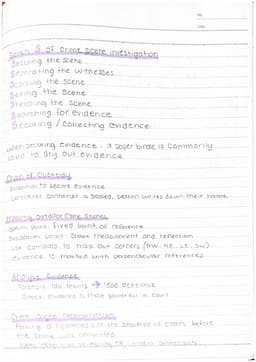 No.
Date
Seven S of Crime Scene Investigation
Securing the scene
Separating the witnesses
Scanning the scene
Seeing the scene
Sketching the scene
Searching for evidence
Securing / collecting evidence
When securing evidence, a paper bindle is commonly
used to dry out evidence
Chain of Custody
Essential to secure evidence
Whenever container is sealed, person writes down their name
Mapping Outdoor Crime Scenes
Datum point: fixed point of reference
Triangulation: measurement and
Use compass to map out corners (NW, NE, SE, SW)
Evidence is marked with perpendicular references
Analyze Evidence
Forensic lab results → lead detective
Direct evidence is more powerful in court
Crime Scene Reconstruction
Forming a hypothesis of the sequence of events before
the crime was committed